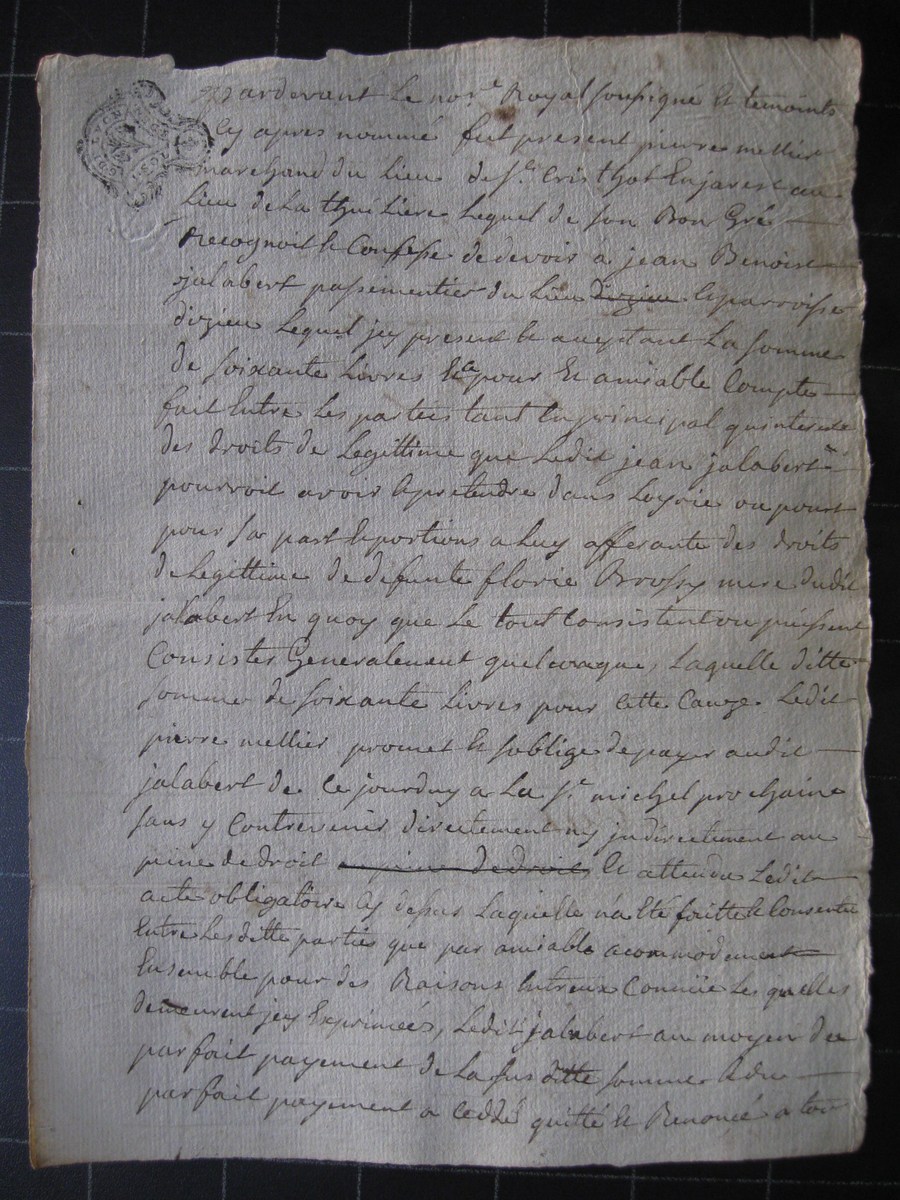 Pardevant Le no.re Royal soussigné Et temoints
Cy apres nommé fut present pierre mellier
marchand du Lieu de St. Cristhot En jarest au
Lieu de La thuiliere Lequel de son Bon Gré
Recognoit & Confesse de devoir à jean Benoist
jalabert passementier du Lieu dizieu & parroisse
dizieu Lequel jcy present & aceptant La somme
de soixante Livres Et ce pour Et amiable Compte
fait Entre Les parties tant En principal quinterests
des droits de Legittime que Ledit jean jalabert
pourroit avoir & pretendre dans Loyrie ou pour
pour sa part & portions a Luy afferante des droits
de Legittime de defunte florie Brossy mere dudit
jalabert En quoy que Le tout Consistent ou puissent
Consister Generalement quelconque, Laquelle ditte
somme de soixante Livres pour Cette Cauze Ledit
pierre mellier promet Et soblige de payer audit
jalabert de Ce jourduy a La St. michel prochaine
sans y Contrevenir directement ny jndirectement au
peine de droit au peine de droit Et attendu Ledit
acte obligatoire Cy dessus Laquelle na Eté faitte & Consentie
Entre Lesditte parties que par amiable acommodement
Ensemble pour des Raisons Entreux Connüe Les quelles
demeurent jcy Exprimées, Ledit jalabert au moyen du
parfait payement de La sus ditte somme & du
parfait payement a Ceddé quitté Et Renoncé a tou